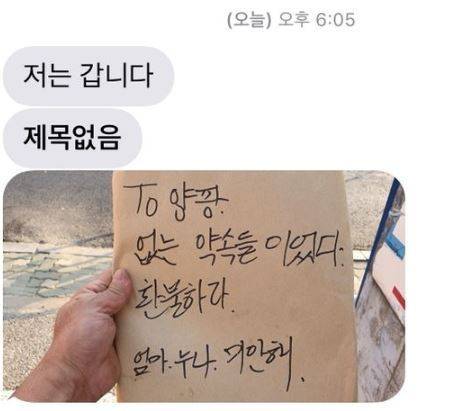 (오늘) 오후 6:05
저는 갑니다
제목없음
To 양팡.
없는 약속들 이었다.
환불하라.
엄마.누나. 미안해.